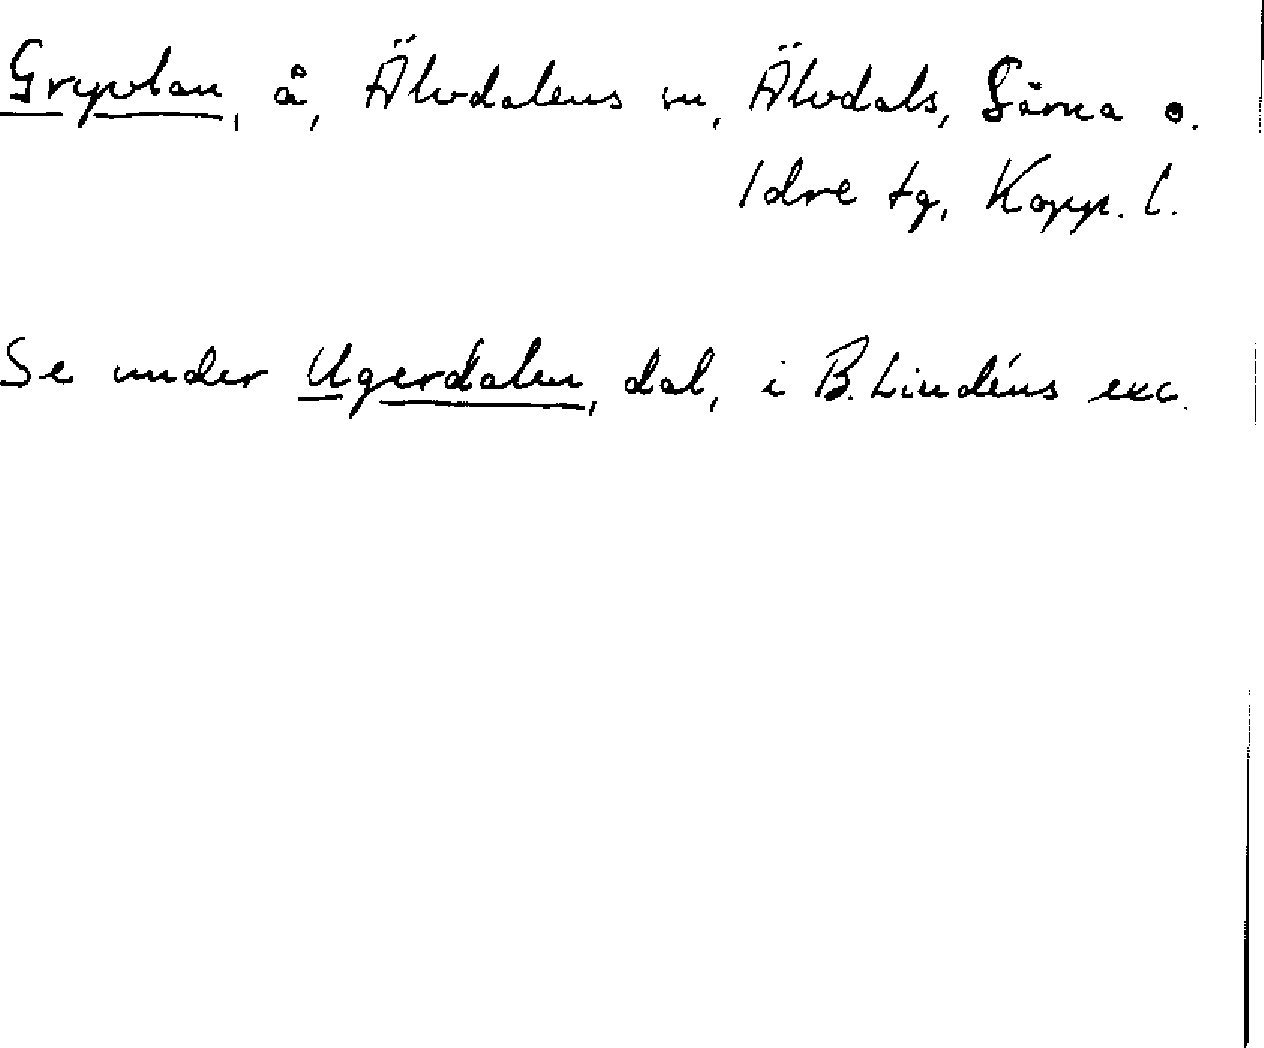 Gryvlan, å, Älvdalens m, Älvdals, Särna o.
Idre tg, Kopp. l.
Se under Ugerdalen, dal, i B. Lindéns exc.